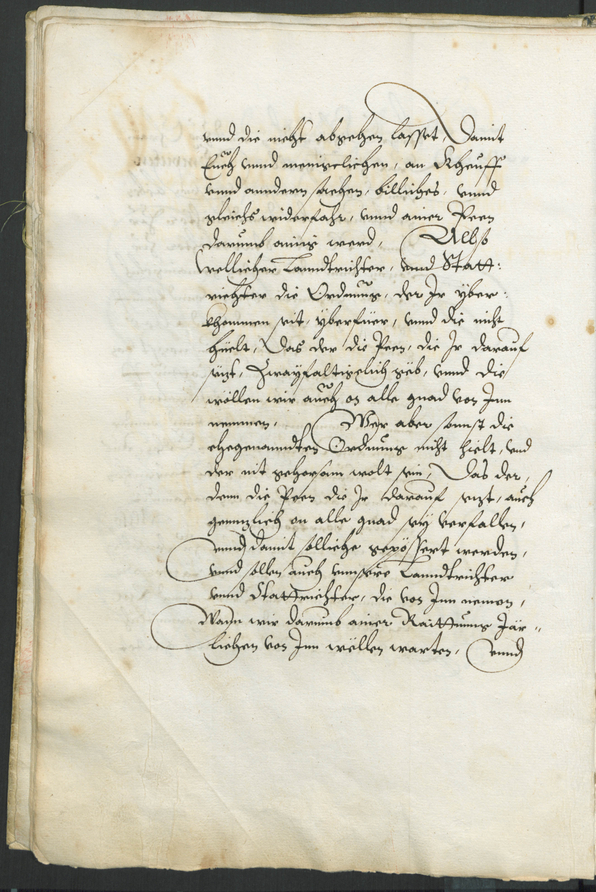 vnnd die nicht abgehen lasset, Damit
Euch vnnd menigclichen, an Kheuff
vnnd anndern sachen, billiches, vnnd
gleichs widerfahr, vnnd ainer Peen
darumb ainig werd, Also
wellicher Lanndtrichter, vnnd Statt:
richter die Ordnung, der Ir yber:
khommen seit, yberfüer, vnnd die nicht
hielt, Das der die Peen, die Ir darauf
sezt, Zwayfaltigclich geb, vnnd die
wöllen wir auch on alle gnad von Inn
nemmen, Wer aber sonnst die
ehegenanndten Ordnung nicht hielt, vnd
der nit gehorsam wolt sein, Das der,
denn die Peen die Ir darauf sezt, auch
genntzlich on alle gnad sey verfallen,
vnnd damit solliche gepössert werden,
vnnd sollen auch vnnsere Lanndtrichter
vnnd Stattrichter, die von Inn nemen,
Wann wir darumb ainer Raittung Jär-
lichen von Inn wöllen warten, vnnd